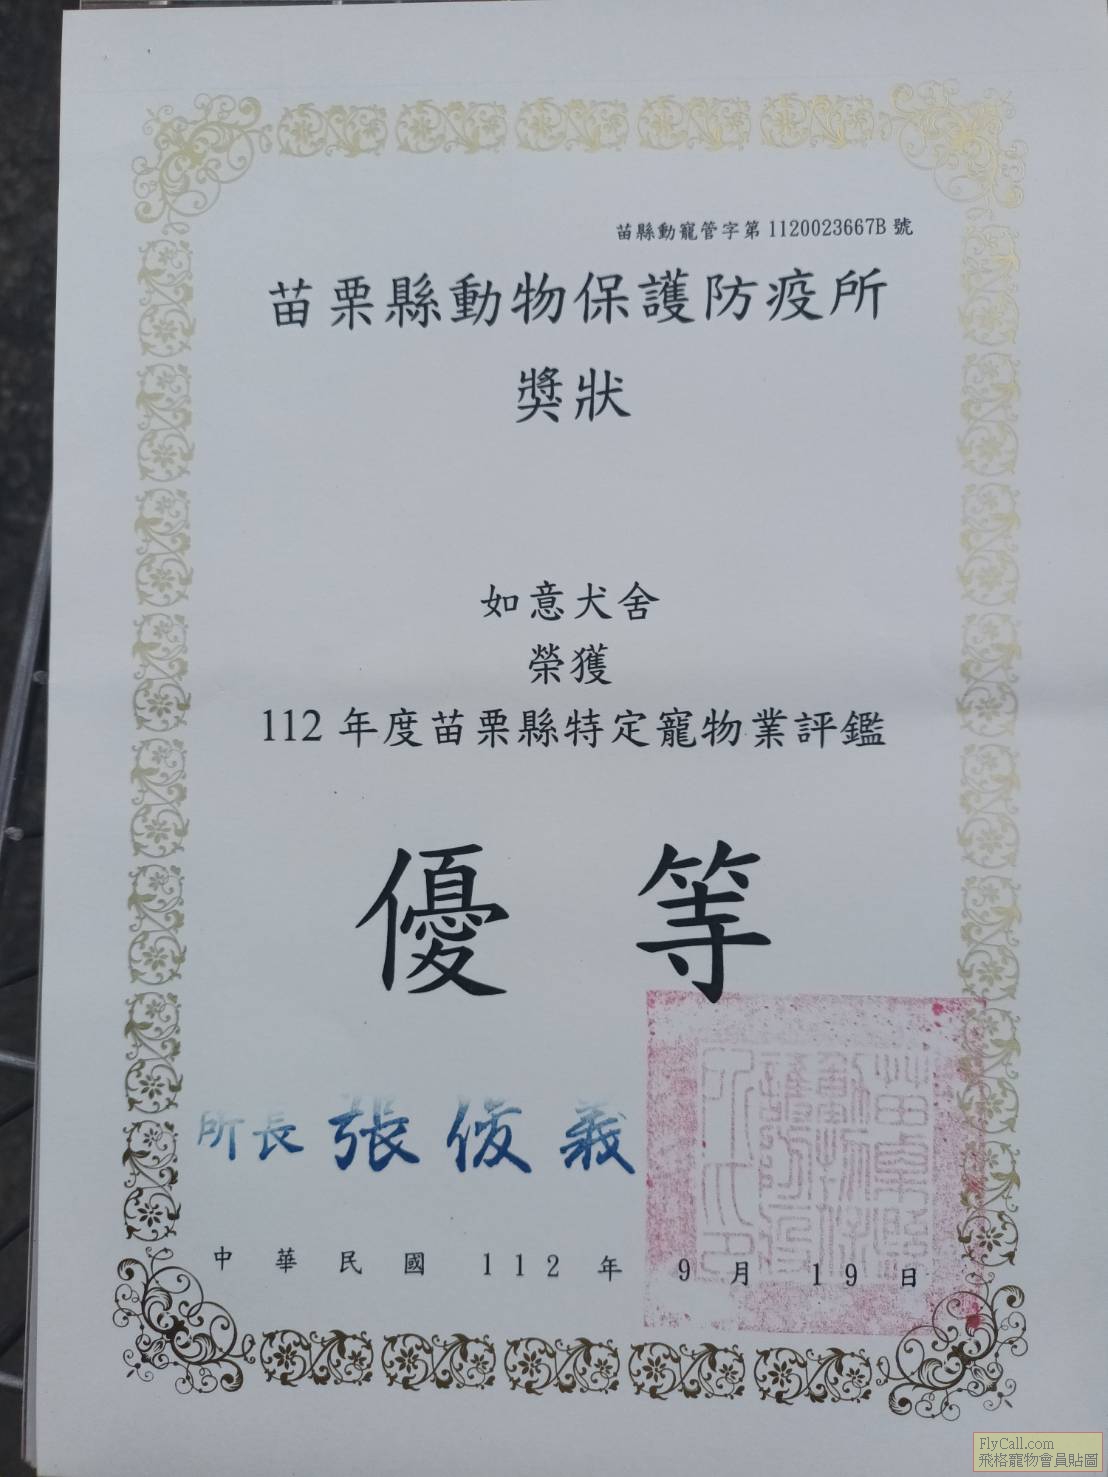 苗縣動寵管字第1120023667B號
苗栗縣動物保護防疫所
獎狀
如意犬舍
榮獲
112年度苗栗縣特定寵物業評鑑
優等
所長 張俊義
中華民國 112 年 9 月 19 日
苗栗縣動物保護防疫所印
FlyCall.com
飛格寵物會員貼圖